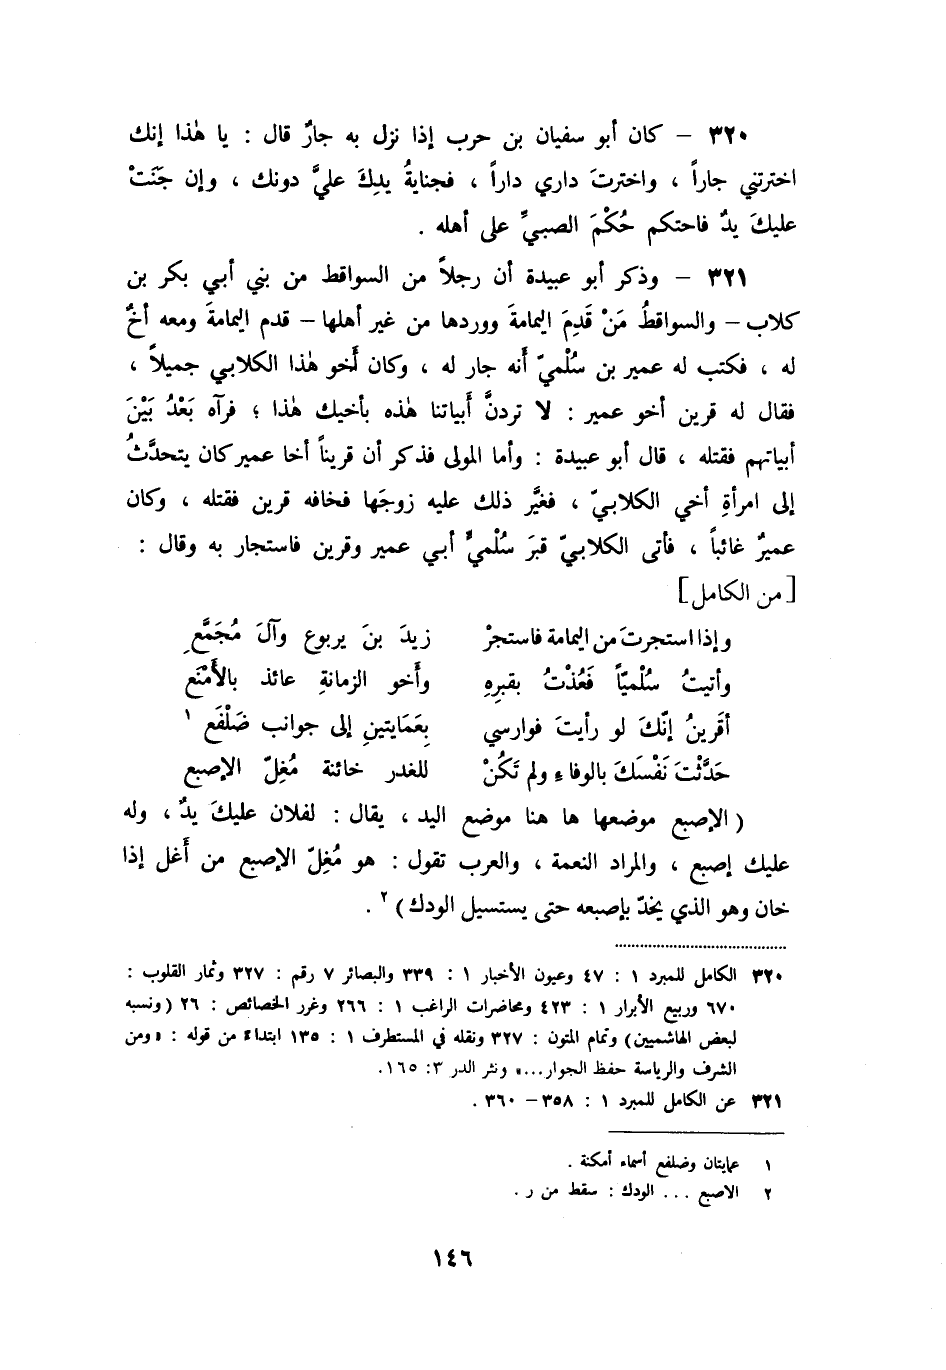 ٣٢٠ – كان أبو سفيان بن حرب إذا نزل به جارٌ قال : يا هٰذا إنك
اخترتني جاراً ، واخترتَ داري داراً ، فجنايةُ يدِكَ عليَّ دونك ، وإن جَنَتْ
عليكَ يدٌ فاحتكم حُكْمَ الصبيِّ على أهله .
٣٢١ – وذكر أبو عبيدة أن رجلاً من السواقط من بني أبي بكر بن
كلاب – والسواقطُ مَنْ قَدِمَ اليمامةَ ووردها من غير أهلها – قدم اليمامةَ ومعه أخٌ
له ، فكتب له عمير بن سُلْميّ أنه جار له ، وكان أخو هٰذا الكلابي جميلاً ،
فقال له قرين أخو عمير : لا تردنَّ أبياتنا هٰذه بأخيك هٰذا ؛ فرآه بَعْدُ بَيْنَ
أبياتهم فقتله ، قال أبو عبيدة : وأما المولى فذكر أن قريناً أخا عمير كان يتحدَّثُ
إلى امرأةِ أخي الكلابيّ ، فغيَّر ذلك عليه زوجَها فخافه قرين فقتله ، وكان
عميرٌ غائباً ، فأتى الكلابيّ قبرَ سُلْميٍّ أبي عمير وقرين فاستجار به وقال :
[من الكامل]
وإذا استجرتَ من اليمامة فاستجرْ زيدَ بنَ يربوع وآلَ مُجَمَّعِ
وأتيتُ سُلْميّاً فَعُذْتُ بقبرِهِ وأخو الزمانةِ عائذ بالأَمْنَع
أقَرينُ إنّكَ لو رأيتَ فوارسي بِعَمَايتينِ إلى جوانب ضَلْفَع ١
حَدَّثْتَ نَفْسَكَ بالوفاء ولم تَكُنْ للغدر خائنة مُغِلّ الإصبع
( الإصبع موضعها ها هنا موضع اليد ، يقال : لفلان عليكَ يدٌ ، وله
عليك إصبع ، والمراد النعمة ، والعرب تقول : هو مُغِلّ الإصبع من أَغل إذا
خان وهو الذي يخدّ بإصبعه حتى يستسيل الودك) ٢ .
٣٢٠ الكامل للمبرد ١ : ٤٧ وعيون الأخبار ١ : ٣٣٩ والبصائر ٧ رقم : ٣٢٧ وثمار القلوب :
٦٧٠ وربيع الأبرار ١ : ٤٢٣ ومحاضرات الراغب ١ : ٢٦٦ وغرر الخصائص : ٢٦ (ونسبه
لبعض الهاشميين) وتمام المتون : ٣٢٧ ونقله في المستطرف ١ : ١٣٥ ابتداءً من قوله : «ومن
الشرف والرياسة حفظ الجوار...» ونثر الدر ٣: ١٦٥.
٣٢١ عن الكامل للمبرد ١ : ٣٥٨ – ٣٦٠ .
١ عمايتان وضلفع أسماء أمكنة .
٢ الاصبع ... الودك : سقط من ر .
١٤٦